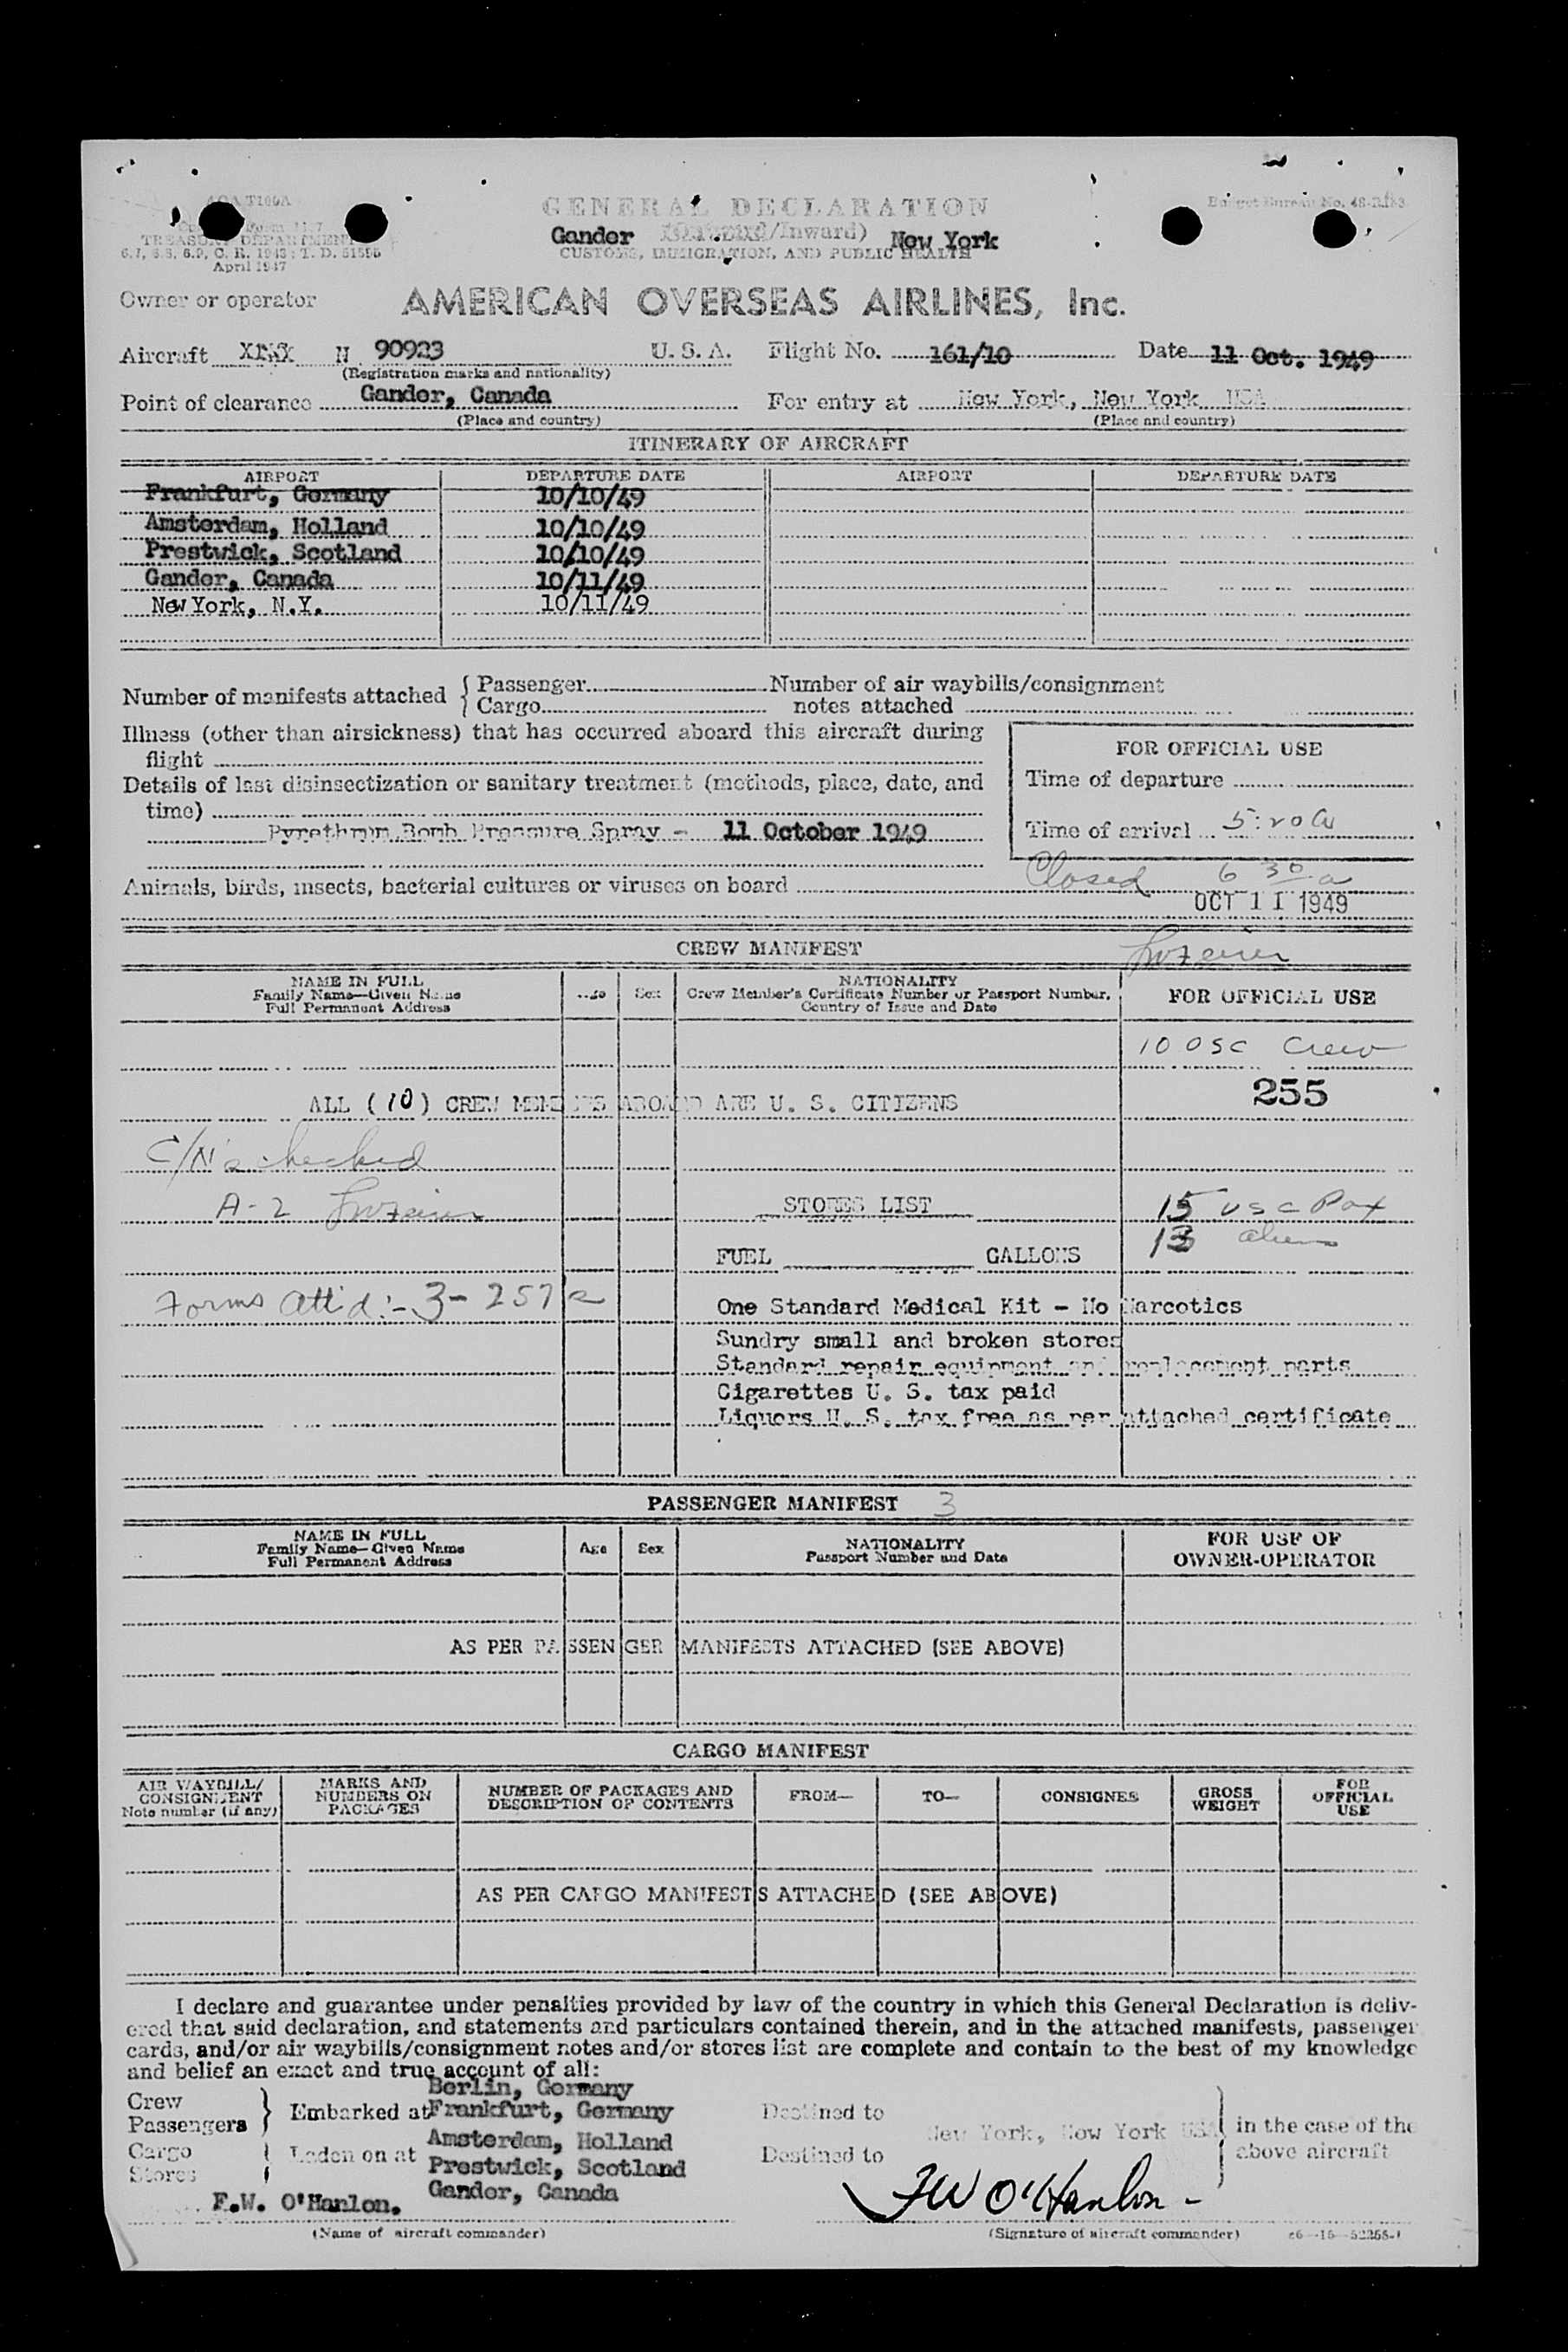 GENERAL DECLARATION
Gander (Outward/Inward) New York
CUSTOMS, IMMIGRATION, AND PUBLIC HEALTH
TREASURY DEPARTMENT
April 1947
Owner or operator AMERICAN OVERSEAS AIRLINES, Inc.
Aircraft N 90923 U. S. A. Flight No. 161/10 Date 11 Oct. 1949
(Registration marks and nationality)
Point of clearance Gander, Canada For entry at New York, New York USA
(Place and country) (Place and country)
ITINERARY OF AIRCRAFT
AIRPORT DEPARTURE DATE AIRPORT DEPARTURE DATE
Frankfurt, Germany 10/10/49
Amsterdam, Holland 10/10/49
Prestwick, Scotland 10/10/49
Gander, Canada 10/11/49
New York, N.Y. 10/11/49
Number of manifests attached { Passenger Number of air waybills/consignment
Cargo notes attached
Illness (other than airsickness) that has occurred aboard this aircraft during
flight
FOR OFFICIAL USE
Details of last disinsectization or sanitary treatment (methods, place, date, and
time)
Time of departure
Pyrethrum Bomb Pressure Spray - 11 October 1949
Time of arrival 5:20 a
Closed 6 30 a
Animals, birds, insects, bacterial cultures or viruses on board
OCT 11 1949
CREW MANIFEST
NAME IN FULL Age Sex NATIONALITY FOR OFFICIAL USE
Family Name—Given Name Crew Member's Certificate Number or Passport Number,
Full Permanent Address Country of Issue and Date
10 USC Crew
255
ALL (10) CREW MEMBERS ABOARD ARE U. S. CITIZENS
C/N's checked
A-2
STORES LIST 15 USC Pax
13 aliens
FUEL GALLONS
Forms att'd:- 3- 257
One Standard Medical Kit - No Narcotics
Sundry small and broken stores
Standard repair equipment and replacement parts
Cigarettes U. S. tax paid
Liquors U. S. tax free as per attached certificate
PASSENGER MANIFEST 3
NAME IN FULL Age Sex NATIONALITY FOR USE OF
Family Name—Given Name Passport Number and Date OWNER-OPERATOR
Full Permanent Address
AS PER PASSENGER MANIFESTS ATTACHED (SEE ABOVE)
CARGO MANIFEST
AIR WAYBILL/ MARKS AND NUMBER OF PACKAGES AND FROM— TO— CONSIGNEE GROSS FOR
CONSIGNMENT NUMBERS ON DESCRIPTION OF CONTENTS WEIGHT OFFICIAL
Note number (if any) PACKAGES USE
AS PER CARGO MANIFESTS ATTACHED (SEE ABOVE)
I declare and guarantee under penalties provided by law of the country in which this General Declaration is deliv-
ered that said declaration, and statements and particulars contained therein, and in the attached manifests, passenger
cards, and/or air waybills/consignment notes and/or stores list are complete and contain to the best of my knowledge
and belief an exact and true account of all:
Berlin, Germany
Crew
Passengers } Embarked at Frankfurt, Germany Destined to New York, New York USA } in the case of the
Amsterdam, Holland
Cargo
Stores } Laden on at Prestwick, Scotland Destined to above aircraft
Gander, Canada
F.W. O'Hanlon. FW O'Hanlon -
(Name of aircraft commander) (Signature of aircraft commander)